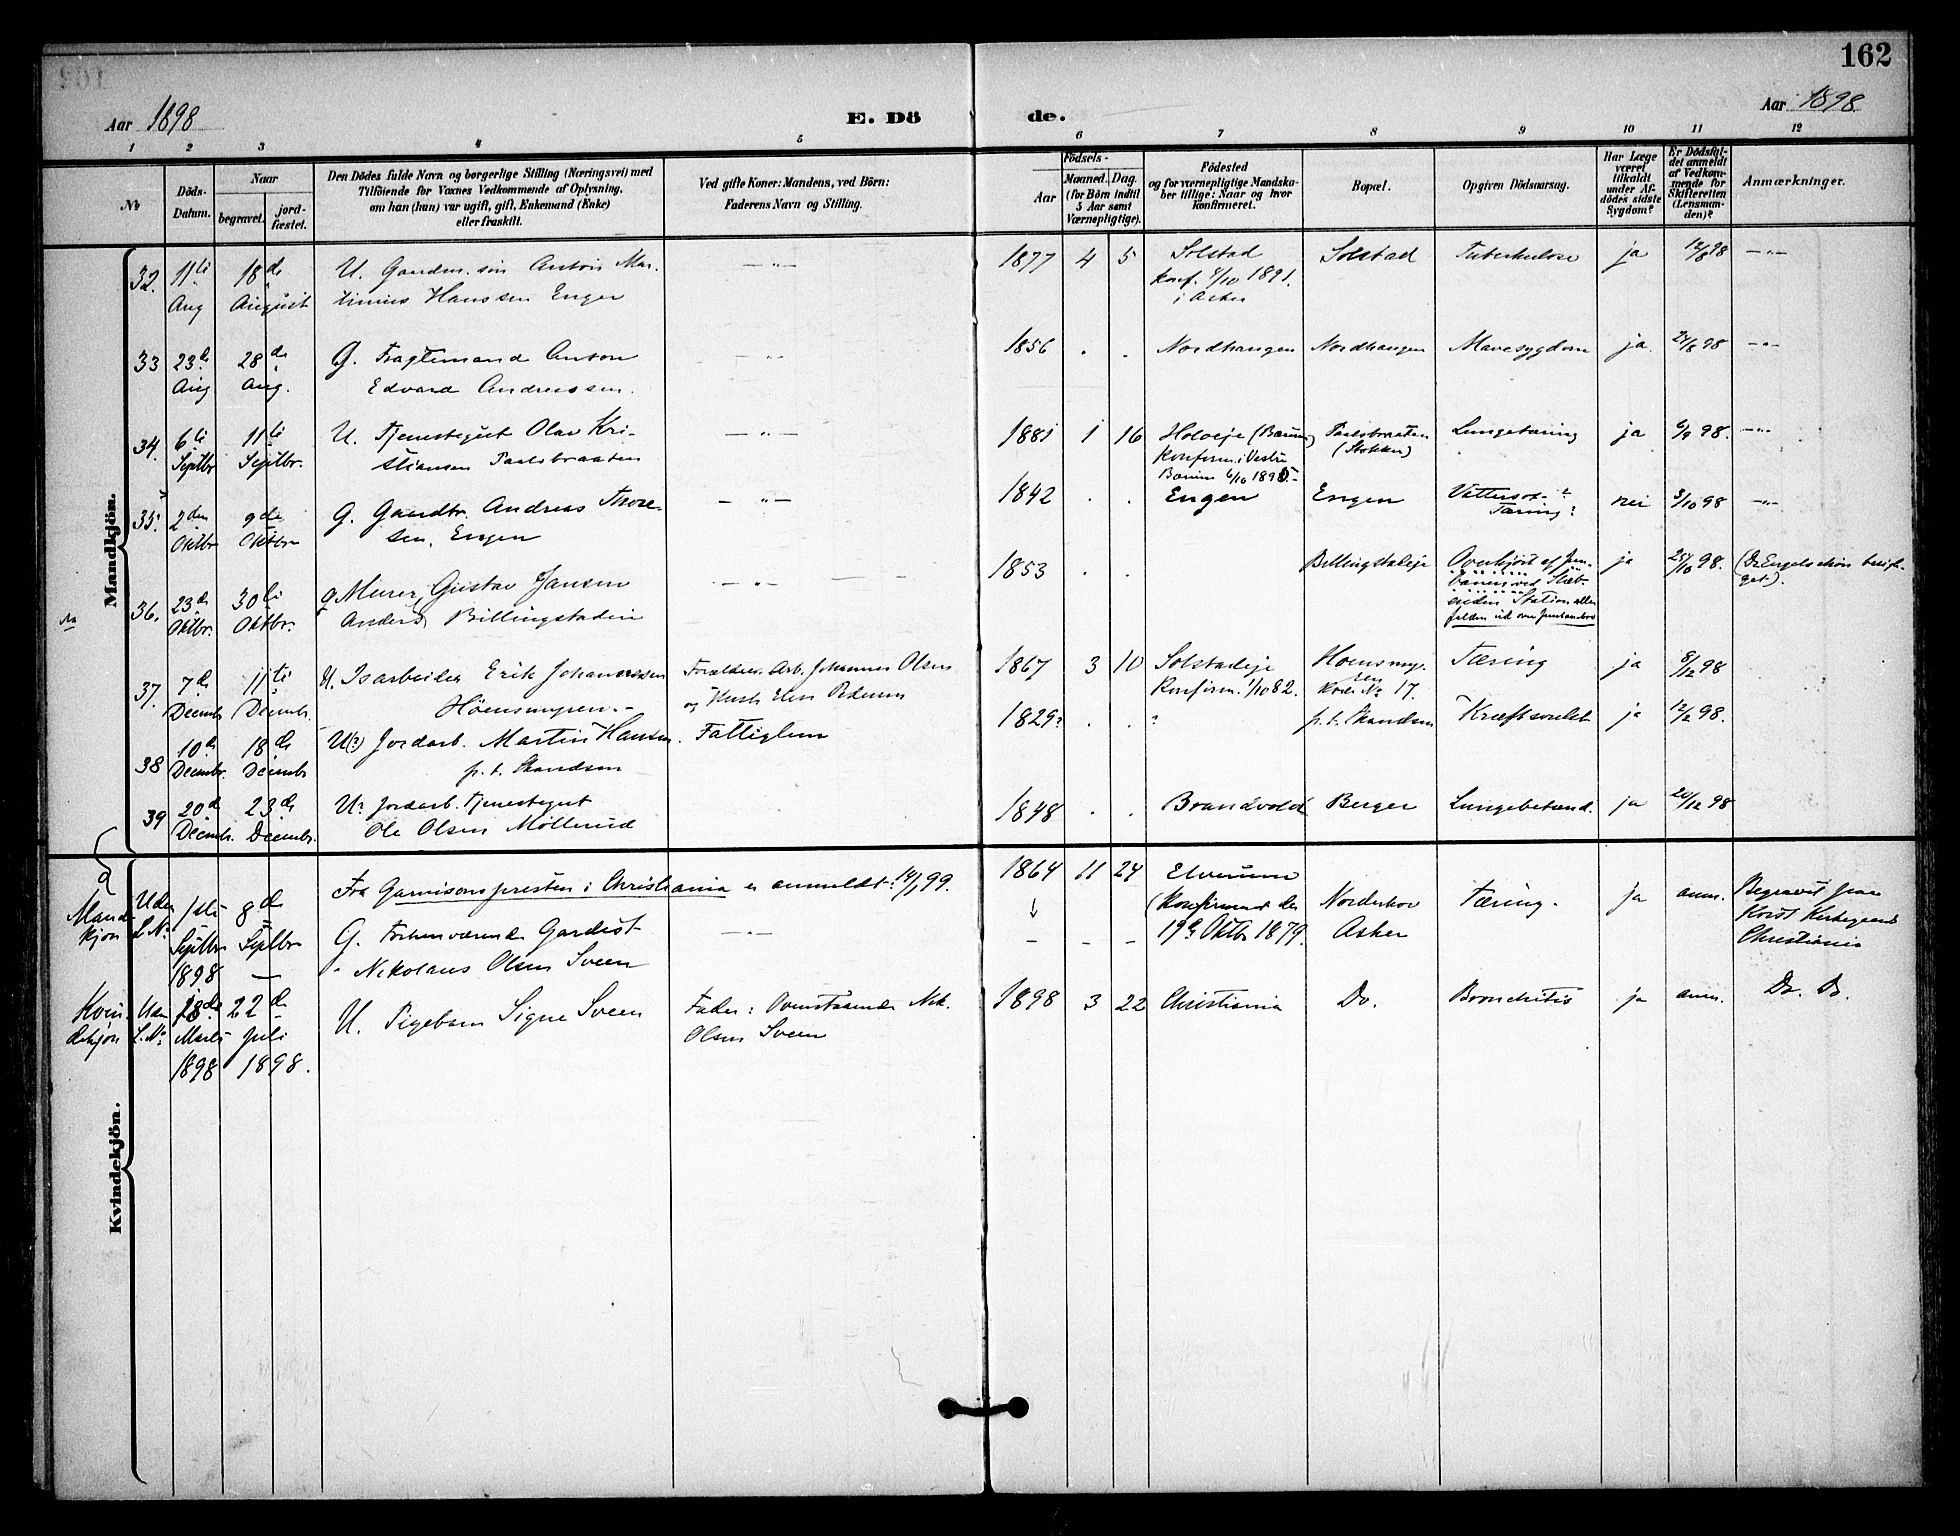 162
Aar 1898
E. Dö
de.
Aar 1898.
1 2 3 4 5 6 7 8 9 10 11 12
№
Döds-Datum.
Naar
begravet.
jordfæstet.
Den Dödes fulde Navn og borgerlige Stilling (Næringsvei) med
Tilföiende for Voxnes Vedkommende af Oplysning,
om han (hun) var ugift, gift, Enkemand (Enke)
eller fraskilt.
Ved gifte Koner: Mandens, ved Börn:
Faderens Navn og Stilling.
Födsels-
Aar
Maaned. Dag.
(for Börn indtil
5 Aar samt
Værnepligtige).
Födested
og for værnepligtige Mandska-
ber tillige: Naar og hvor
konfirmeret.
Bopæl.
Opgiven Dödsaarsag.
Har Læge
været
tilkaldt
under Af-
dödes sidste
Sygdom?
Er Dödsfal-
det anmeldt
af Vedkom-
mende for
Skifteretten
(Lensman-
den)?
Anmærkninger.
Mandkjön.
32. 11te Aug 18de August
U. Gaardm. sön Anton Mar-
tinius Hanssen Enger
— „ —
1877 4 5
Solstad
Konf. 4/10 1891.
i Asker
Solstad Tuberkulose ja 12/8 98 — „ —
33 23de Aug. 28de Aug.
G. Fragtemand Anton
Edvard Andreassen.
- „ -
1856 . . Nordhangen Nordhangen Mavesygdom ja. 24/8 98 - „ -
34. 6te Septbr 11te Septbr.
U. Tjenestegut Olav Kri-
stiansen Paalsbraaten
— „ —
1881 1 16 Holveje (Bærum)
Konfirm. i Vestre
Bærum 6/10 1895.-
Paalsbraaten
(Stokker)
Lungetæring ja 6/9 98. - „ -
35. 2den Oktbr 9de Oktbr
G. Gaardbr. Andreas Thore-
sen, Engen
— „ —
1842 . . Engen Engen
Vattersot-?
Tæring?
nei 3/10 98 — „ —
36. 23de Oktbr. 30te Oktbr.
g Murer, Gustav Jansen
Anders Billingstadeie
— „ —
1853 . . Billingstadeje
Overkjört af Jern-
banen ved Slæb-
enden Station eller
falden ud over
ja 25/10 98.
37. 7de Decembr 11te Decembr.
U. Isarbeider Erik Johannessen
Höensmyren.-
Forældre: Arb. Johannes Olsen
og Hust. Elen Pedersen
1867 3 10 Solstadeje
Konfirm. 1/10 82.
Hoensmy-
sen
Kode No 17.
Tæring ja 8/12 98
38 10de Decembr. 18de Decembr
U(?) Jordarb. Martin Hansen.
p. t. Skandsen
Fattiglem
1829? . ?
p. t. Skandsen Kræftsvulst ja 12/12 98.
39 20de Decembr. 23de Decembr.
U? Jordarb. Tjenestegut
Ole Olsen Möllerud
1848 . . Brandvold Berger Lungebetænd. ja 20/12 98
Mand-
kjön
Uden L No
1ste Septbr 1898
8de Septbr —
Fra Garnisonspresten i Christiania er anmeldt: 14/1 99.
G. Forhenværende Gardist
- Nikolaus Olsen Sveen
— „ —
1864 11 24
Elverum
(Konfirmeret den
19de Oktbr 1879.
Norderhov
Asker
Tæring. Ja anm.
Begravet paa
Korst Kirkegaard
Christiania
Kvin-
dekjön
Uden L. No
18de Marts 1898
22de Juli 1898.
U. Pigebarn Signe Sveen
Fader: Ovenstaaende Nik.
Olsen Sveen
1898 3 22 Christiania Do. Bronchitis ja anm. Do. Do.
Kvindekjön.